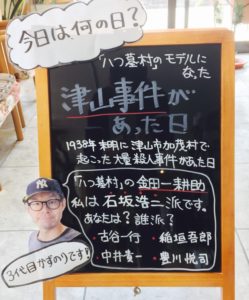 今日は何の日?
「八つ墓村」のモデルに
なった
津山事件が
あった日
1938年未明に津山市加茂村で
起こった大量殺人事件があった日
「八つ墓村」の金田一耕助
私は石坂浩二派です。
あなたは?誰派?
・古谷一行
・稲垣吾郎
・中井貴一
・豊川悦司
3代目かずのりです!